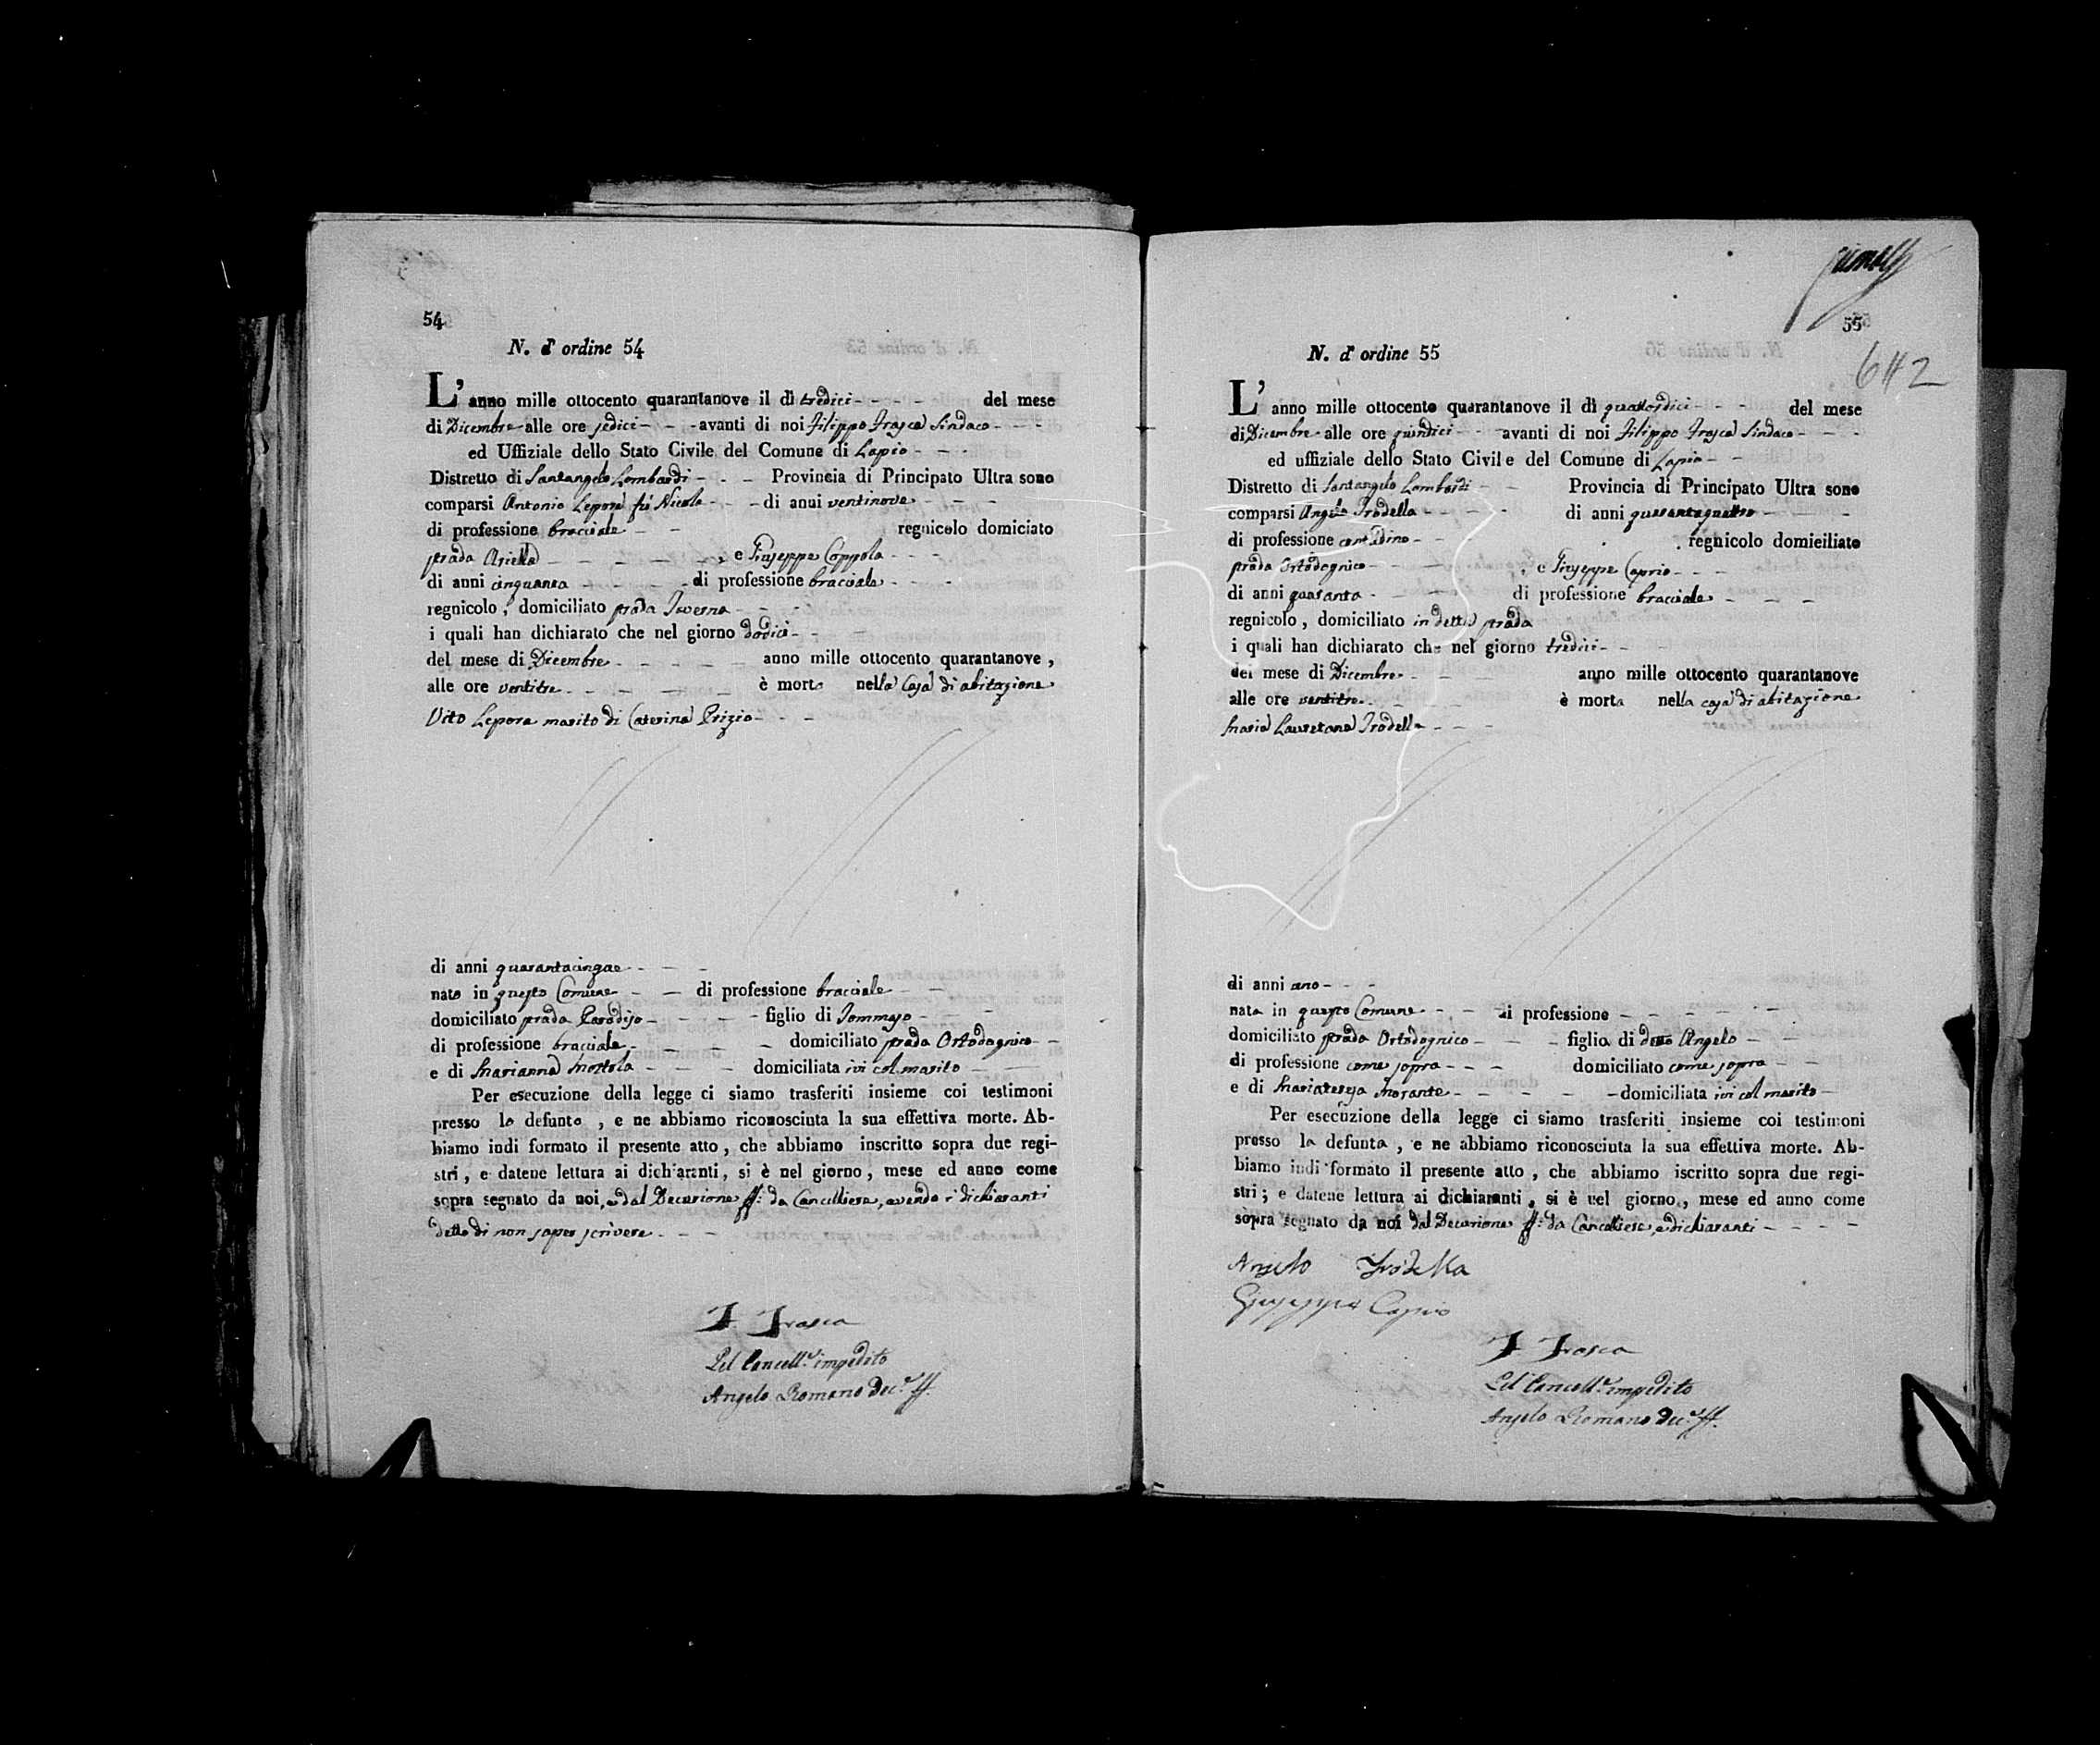 54
N. d' ordine 54
L' anno mille ottocento quarantanove il dì tredici del mese
di Dicembre alle ore sedici avanti di noi Filippo Frasca Sindaco
ed Uffiziale dello Stato Civile del Comune di Lapio
Distretto di Santangelo Lombardi Provincia di Principato Ultra sono
comparsi Antonio Lepore fu Nicola di anni ventinove
di professione bracciale regnicolo domiciato
strada Ariella , e Giuseppe Coppola
di anni cinquanta di professione bracciale
regnicolo , domiciliato strada
i quali han dichiarato che nel giorno dodici
del mese di Dicembre anno mille ottocento quarantanove ,
alle ore ventitre è morto nella Casa di abitazione
Vito Lepore marito di Caterina Prizio
di anni quarantacinque
nato in questo Comune di professione bracciale
domiciliato strada Paradiso figlio di Tommaso
di professione bracciale domiciliato strada Ortodagnico
e di Marianna Mottola domiciliata ivi col marito
Per esecuzione della legge ci siamo trasferiti insieme coi testimoni
presso lo defunto , e ne abbiamo riconosciuta la sua effettiva morte. Ab-
biamo indi formato il presente atto , che abbiamo inscritto sopra due regi-
stri , e datene lettura ai dichiaranti , si è nel giorno , mese ed anno come
sopra segnato da noi, e dal Decurione ff: da Cancelliere, avendo i dichiaranti
detto di non saper scrivere
F. Frasca
Pel Cancell.e impedito
Angelo Romano Dec.e ff.
55
642
N. d' ordine 55
L' anno mille ottocento quarantanove il dì quattordici del mese
di Dicembre alle ore quindici avanti di noi Filippo Frasca Sindaco
ed uffiziale dello Stato Civile del Comune di Lapio
Distretto di Santangelo Lombardi Provincia di Principato Ultra sono
comparsi Angelo Trodella di anni quarantaquattro
di professione contadino regnicolo domiciliato
strada Ortodagnico , e Giuseppe Caprio
di anni quaranta di professione bracciale
regnicolo , domiciliato in detta strada
i quali han dichiarato che nel giorno tredici
del mese di Dicembre anno mille ottocento quarantanove
alle ore ventitre è morta nella casa di abitazione
Maria Lauretana Trodella
di anni uno
nata in questo Comune di professione
domiciliata strada Ortodagnico figlia di detto Angelo
di professione come sopra domiciliato come sopra
e di Mariateresa Morante domiciliata ivi col marito
Per esecuzione della legge ci siamo trasferiti insieme coi testimoni
presso la defunta , e ne abbiamo riconosciuta la sua effettiva morte. Ab-
biamo indi formato il presente atto , che abbiamo iscritto sopra due regi-
stri ; e datene lettura ai dichiaranti , si è nel giorno , mese ed anno come
sopra segnato da noi dal Decurione ff: da Cancelliere, e dichiaranti
Angelo Trodella
Giuseppe Caprio
F. Frasca
Pel Cancell.e impedito
Angelo Romano Dec.e ff.